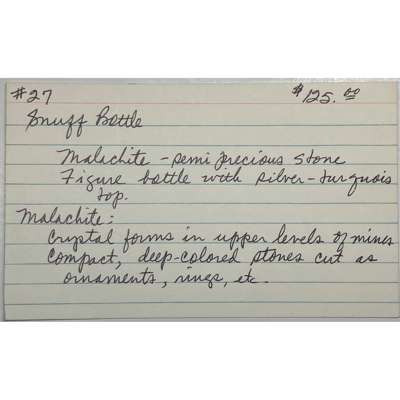 #27 $125.00
Snuff Bottle
Malachite - semi precious stone
Figure bottle with silver-turquois
top.
Malachite:
Crystal forms in upper levels of mines
Compact, deep-colored stones cut as
ornaments, rings, etc.